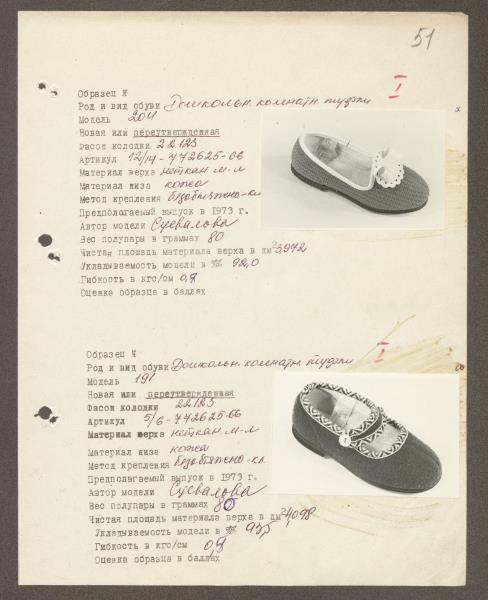 51
I
Образец №
Род и вид обуви Дошкольн. комнатн. туфли
Модель 204
Новая или переутвержденная
Фасон колодки 22123
Артикул 12/14-772625-66
Материал верха неткан. м-л
Материал низа кожа
Метод крепления безобтяжно-кл
Предполагаемый выпуск в 1973 г.
Автор модели Сувалова
Вес полупары в граммах 80
Чистая площадь материала верха в дм² 3,972
Укладываемость модели в % 92,0
Гибкость в кгс/см 0,9
Оценка образца в баллах
I
Образец №
Род и вид обуви Дошкольн. комнатн. туфли
Модель 191
Новая или переутвержденная
Фасон колодки 22123
Артикул 5/6-772625-66
Материал верха неткан. м-л
Материал низа кожа
Метод крепления безобтяжно-кл
Предполагаемый выпуск в 1973 г.
Автор модели Сувалова
Вес полупары в граммах 80
Чистая площадь материала верха в дм² 4,098
Укладываемость модели в % 93,5
Гибкость в кгс/см 0,9
Оценка образца в баллах